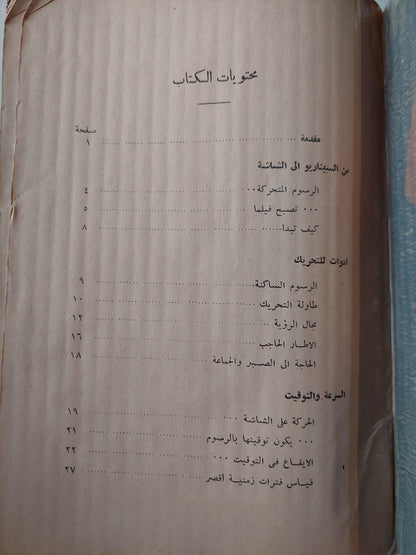 محتويات الكتاب
صفحة
مقدمة ... ١
من السيناريو الى الشاشة
الرسوم المتحركة ... ٤
... تصبح فيلما ... ٥
كيف تبدأ ... ٨
أدوات للتحريك
الرسوم الساكنة ... ٩
طاولة التحريك ... ١٠
مجال الرؤية ... ١٢
الاطار الحاجب ... ١٦
الحاجة الى الصبر والجماعة ١٨
السرعة والتوقيت
الحركة على الشاشة ... ١٩
... يكون توقيتها بالرسوم ... ٢١
الايقاع فى التوقيت ... ٢٢
قياس فترات زمنية أقصر ... ٢٧